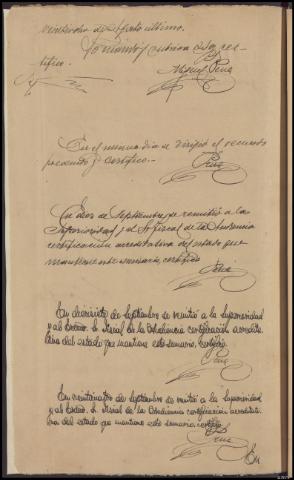 veintiocho de Agosto ultimo.
Lo mandó y rubrica doy fe
tifico.
Miguel Peña
En el mismo dia se dirigió el recuerdo
prevenido y certifico.
Peña
En dos de Septiembre, se remitió a la
Superioridad y al fiscal de la Audiencia
certificacion acreditativa del estado que
mantiene este sumario, certifico
Peña
En diecisiete de Septiembre se remitió a la Superioridad
y al Excmo. Sr. Fiscal de la Audiencia certificación acredita
tiva del estado que mantiene este sumario. Certifico
Peña
En veintinueve de Septiembre se remitió a la Superioridad
y al Excmo. Sr. Fiscal de la Audiencia certificación acreditati
va del estado que mantiene este sumario certifico
Peña
En